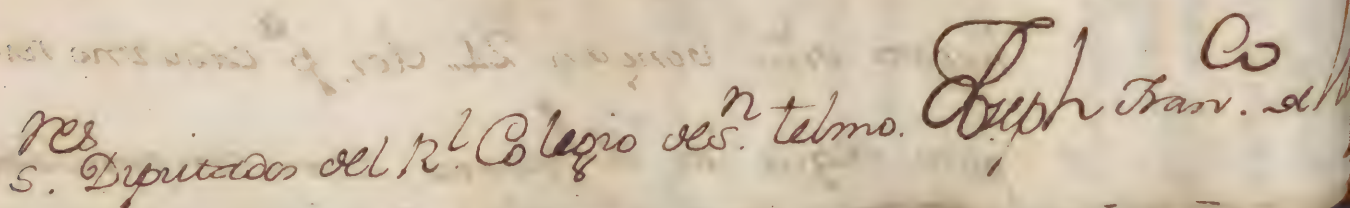 S.res Diputados del R.l Colegio de S.n telmo. Joseph Fran.co de